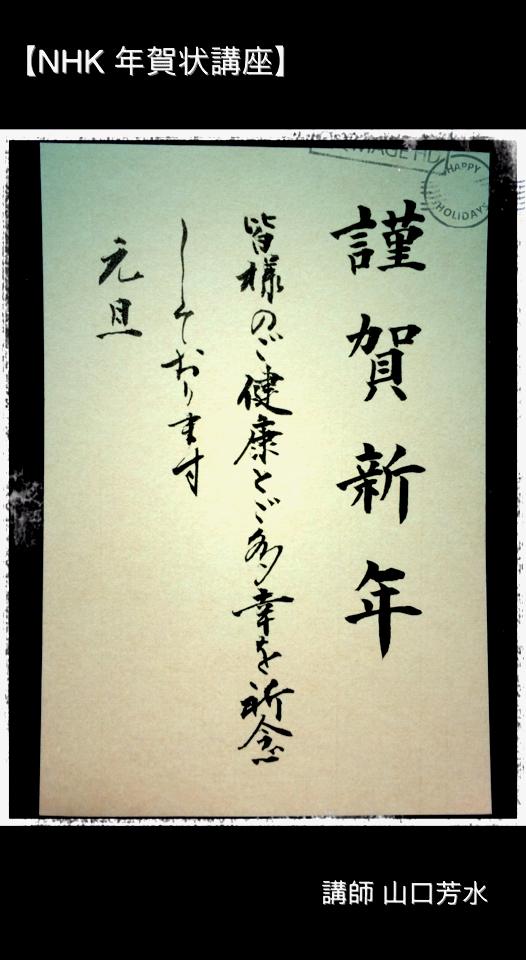 【NHK 年賀状講座】
HAPPY
HOLIDAYS
謹賀新年
皆様のご健康とご多幸を祈念
しております
元旦
講師 山口芳水